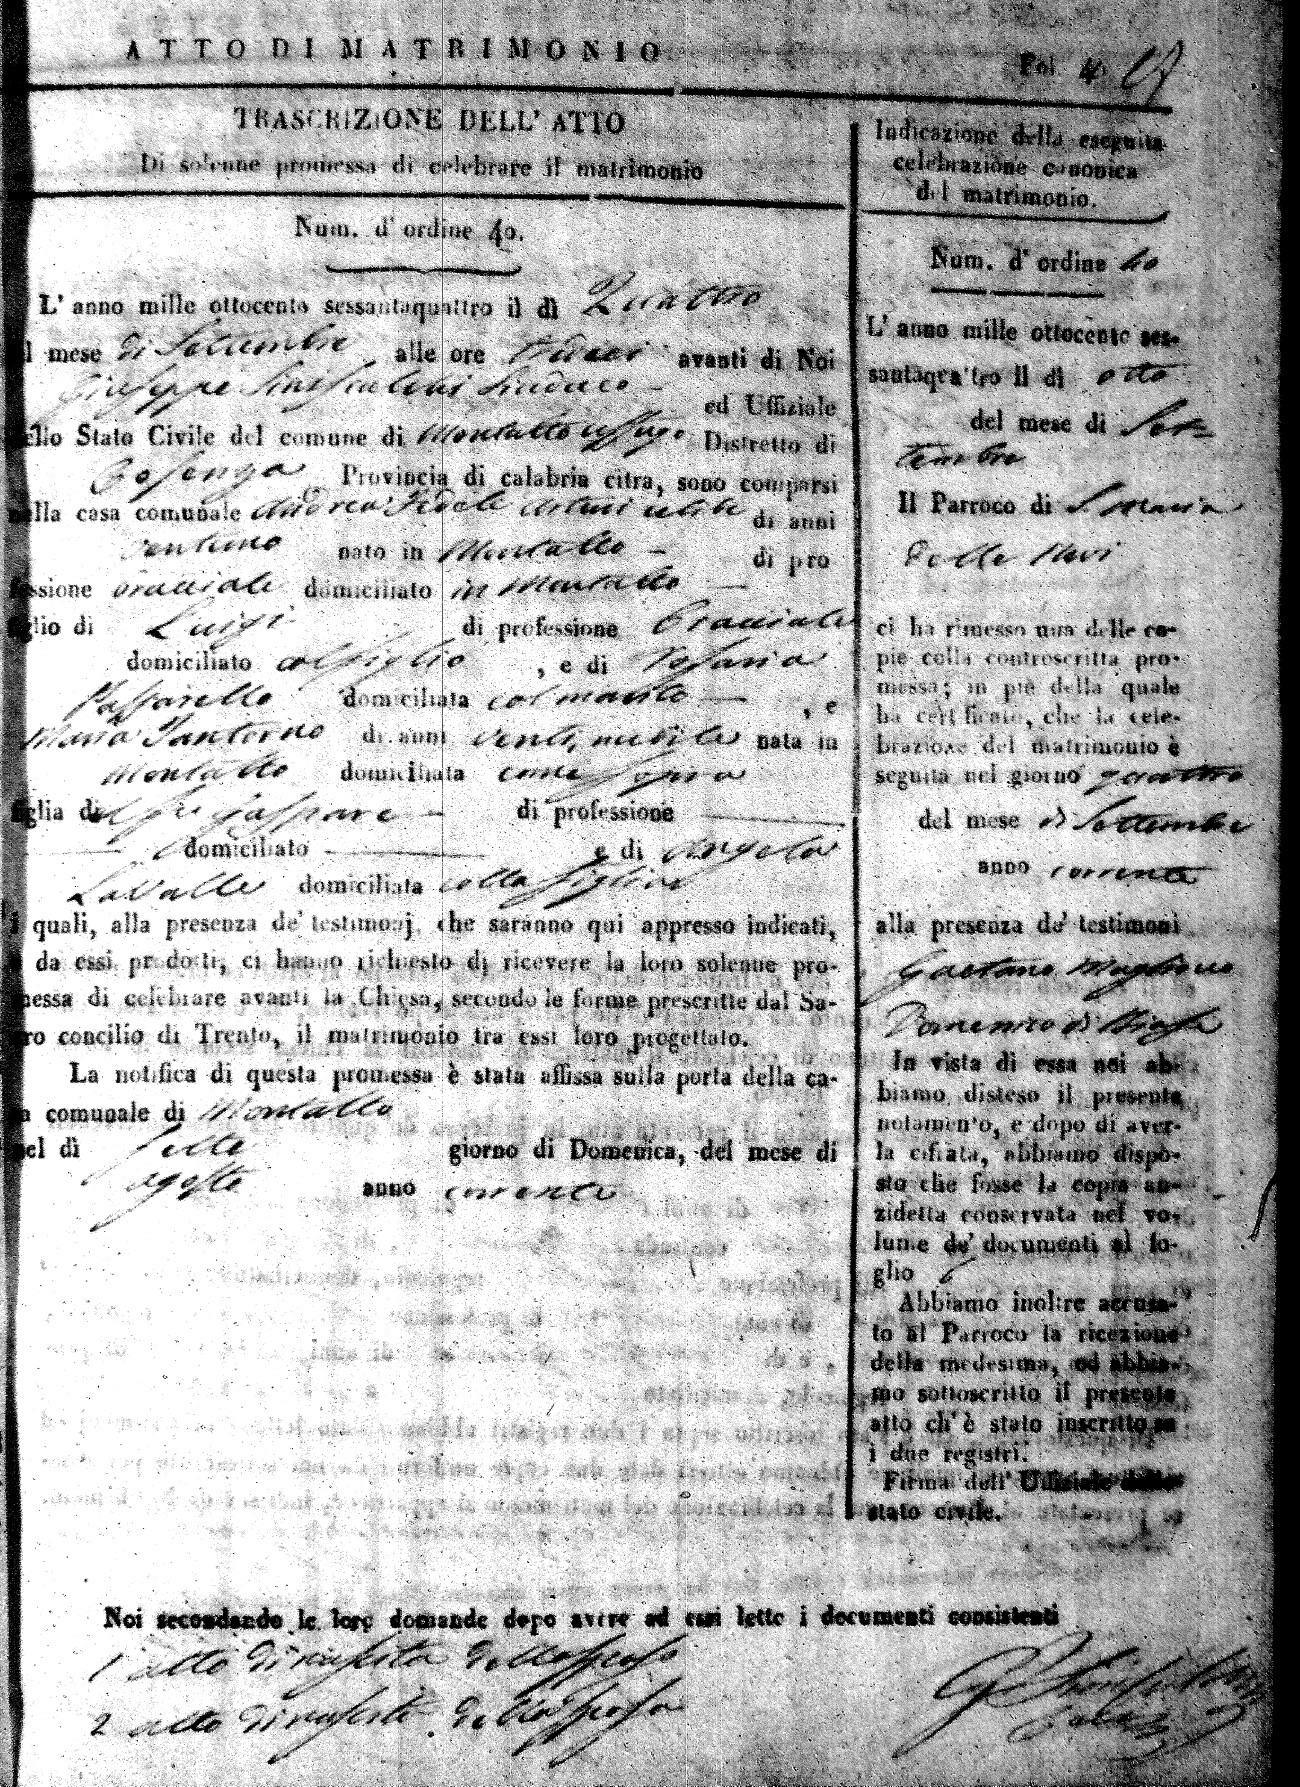 ATTO DI MATRIMONIO
Fol. 4
TRASCRIZIONE DELL' ATTO
Di solenne promessa di celebrare il matrimonio
Num. d' ordine 40.
L' anno mille ottocento sessantaquattro il dì Quattro
l mese di Settembre alle ore avanti di Noi
Giuseppe Siniscalchi Sindaco ed Uffiziale
ello Stato Civile del comune di Montalto Uffugo Distretto di
Cosenza Provincia di calabria citra, sono comparsi
nella casa comunale Andrea Fedele Arturi celibe di anni
ventuno nato in Montalto di pro
fessione bracciale domiciliato in Montalto
glio di Luigi di professione Bracciale
domiciliato col figlio , e di Rosaria
Passarello domiciliata col marito , e
Maria Santorno di anni venti, nubile nata in
Montalto domiciliata come sopra
figlia di del fu Gaspare di professione
domiciliato e di Angela
LaValle domiciliata colla figlia
i quali, alla presenza de' testimonj che saranno qui appresso indicati,
e da essi prodotti, ci hanno richiesto di ricevere la loro solenne pro-
messa di celebrare avanti la Chiesa, secondo le forme prescritte dal Sa-
cro concilio di Trento, il matrimonio tra essi loro progettato.
La notifica di questa promessa è stata affissa sulla porta della ca-
a comunale di Montalto
nel dì Sette giorno di Domenica, del mese di
agosto anno corrente
Indicazione della eseguita
celebrazione canonica
del matrimonio.
Num. d' ordine 40
L' anno mille ottocento ses-
santaquattro il di otto
del mese di Set-
tembre
Il Parroco di S. Maria
delle Nevi
ci ha rimesso una delle co-
pie colla controscritta pro-
messa; in piè della quale
ha certificato, che la cele-
brazione del matrimonio è
seguita nel giorno quattro
del mese di Settembre
anno corrente
alla presenza de' testimoni
Gaetano Maglione
Domenico di Biase
In vista di essa noi ab-
biamo disteso il presente
notamento, e dopo di aver-
la cifrata, abbiamo dispo-
sto che fosse la copia an-
zidetta conservata nel vo-
lume de' documenti al fo-
glio
Abbiamo inoltre accusa-
to al Parroco la ricezione
della medesima, ed abbia-
mo sottoscritto il presente
atto ch' è stato inscritto su
i due registri.
Firma dell' Uffiziale dello
stato civile.
Noi secondando le loro domande dopo avere ad essi letto i documenti consistenti
1 atto di nascita dello sposo
2 atto di nascita della sposa